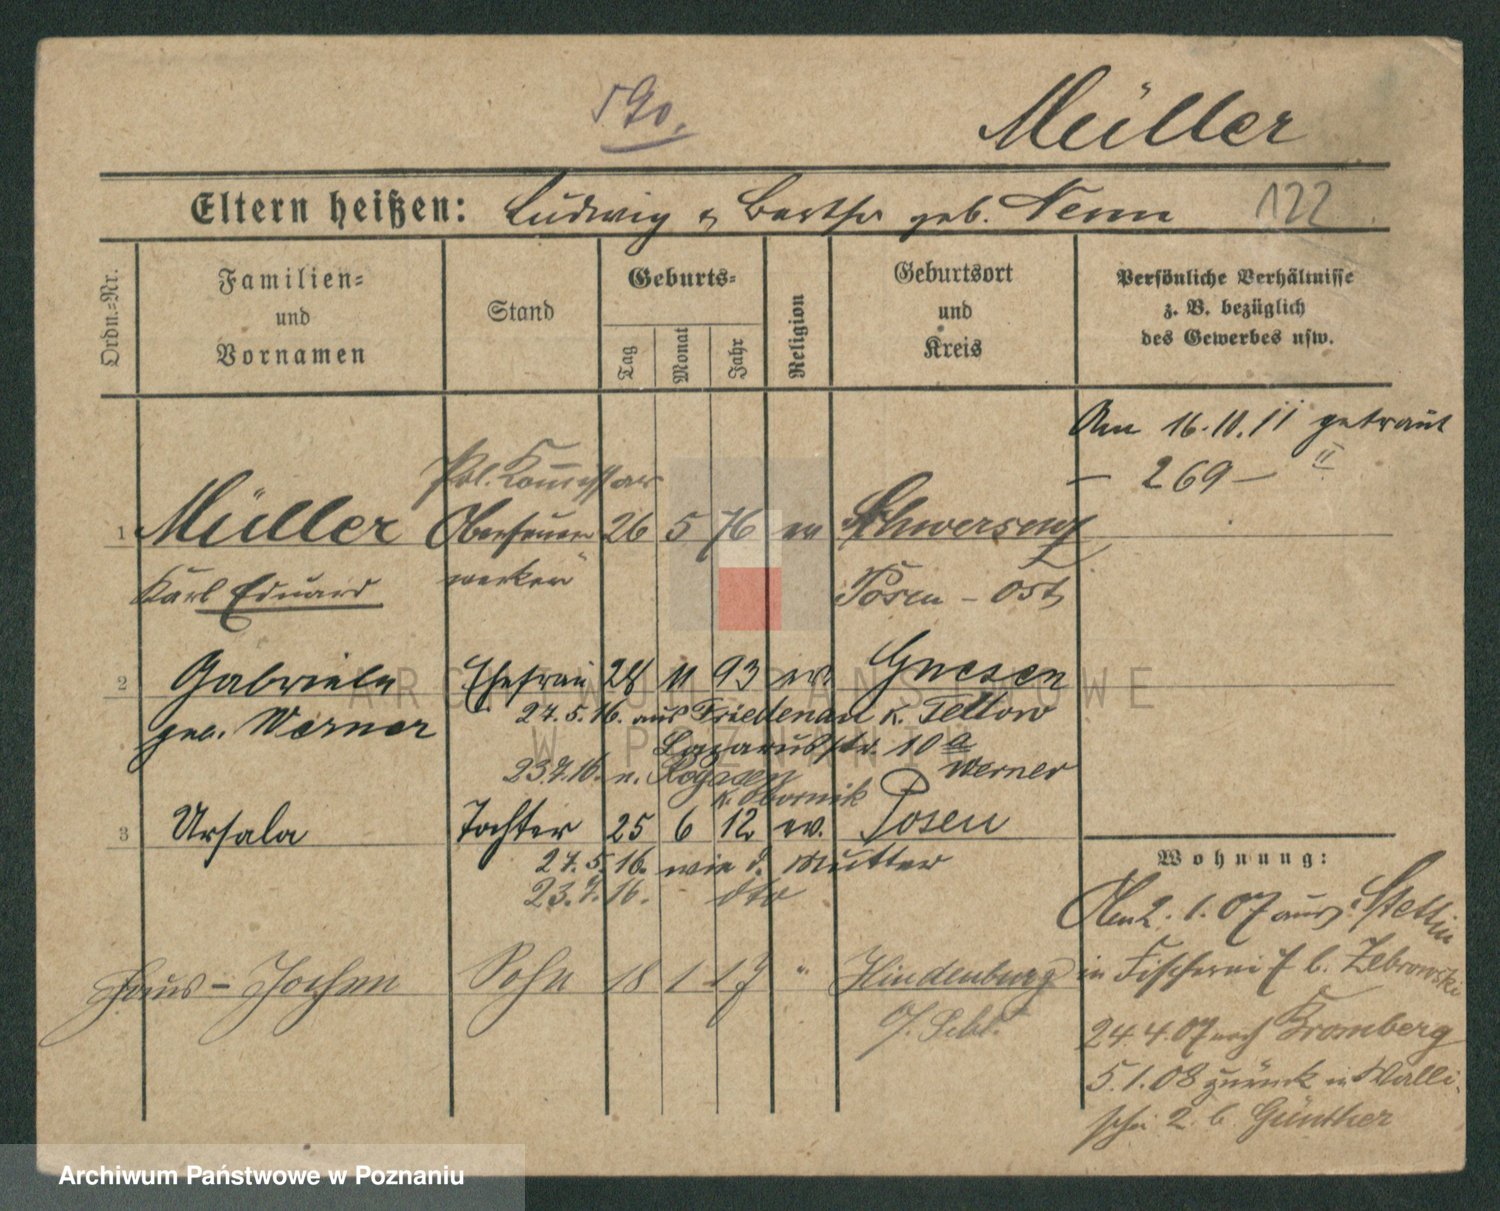 590.
Müller
Eltern heißen: Ludwig u. Bertha geb. Nenn
122
Ordn.-Nr.
Familien-
und
Vornamen
Stand
Geburts-
Tag
Monat
Jahr
Religion
Geburtsort
und
Kreis
Persönliche Verhältnisse
z. B. bezüglich
des Gewerbes usw.
Am 16.10.11 getraut
– 269 – II
Pol. Kommissar
1 Müller Oberfeuer 26 5 76 ev Schwersenz
Karl Eduard werker Posen – Ost
2 Gabriele Ehefrau 28 11 93 ev. Gnesen
geb. Werner 27.5.16. aus Friedenau K. Teltow
Lazarusstr. 10a
Werner
23.7.16. n. Rogasen
K. Obornik
3 Ursala Tochter 25 6 12 ev. Posen
27.5.16. wie d. Mutter
23.7.16. dto
Hans-Jochen Sohn 18 1 17 " Hindenburg
O/Schl.
Wohnung:
Am 2.1.07 aus Stettin
in Fischerei 7 b. Zebrowski
24.4.07 nach Bromberg
5.1.08 zurück in Walli-
schei 2 b Günther
ARCHIWUM PAŃSTWOWE
W POZNANIU
Archiwum Państwowe w Poznaniu